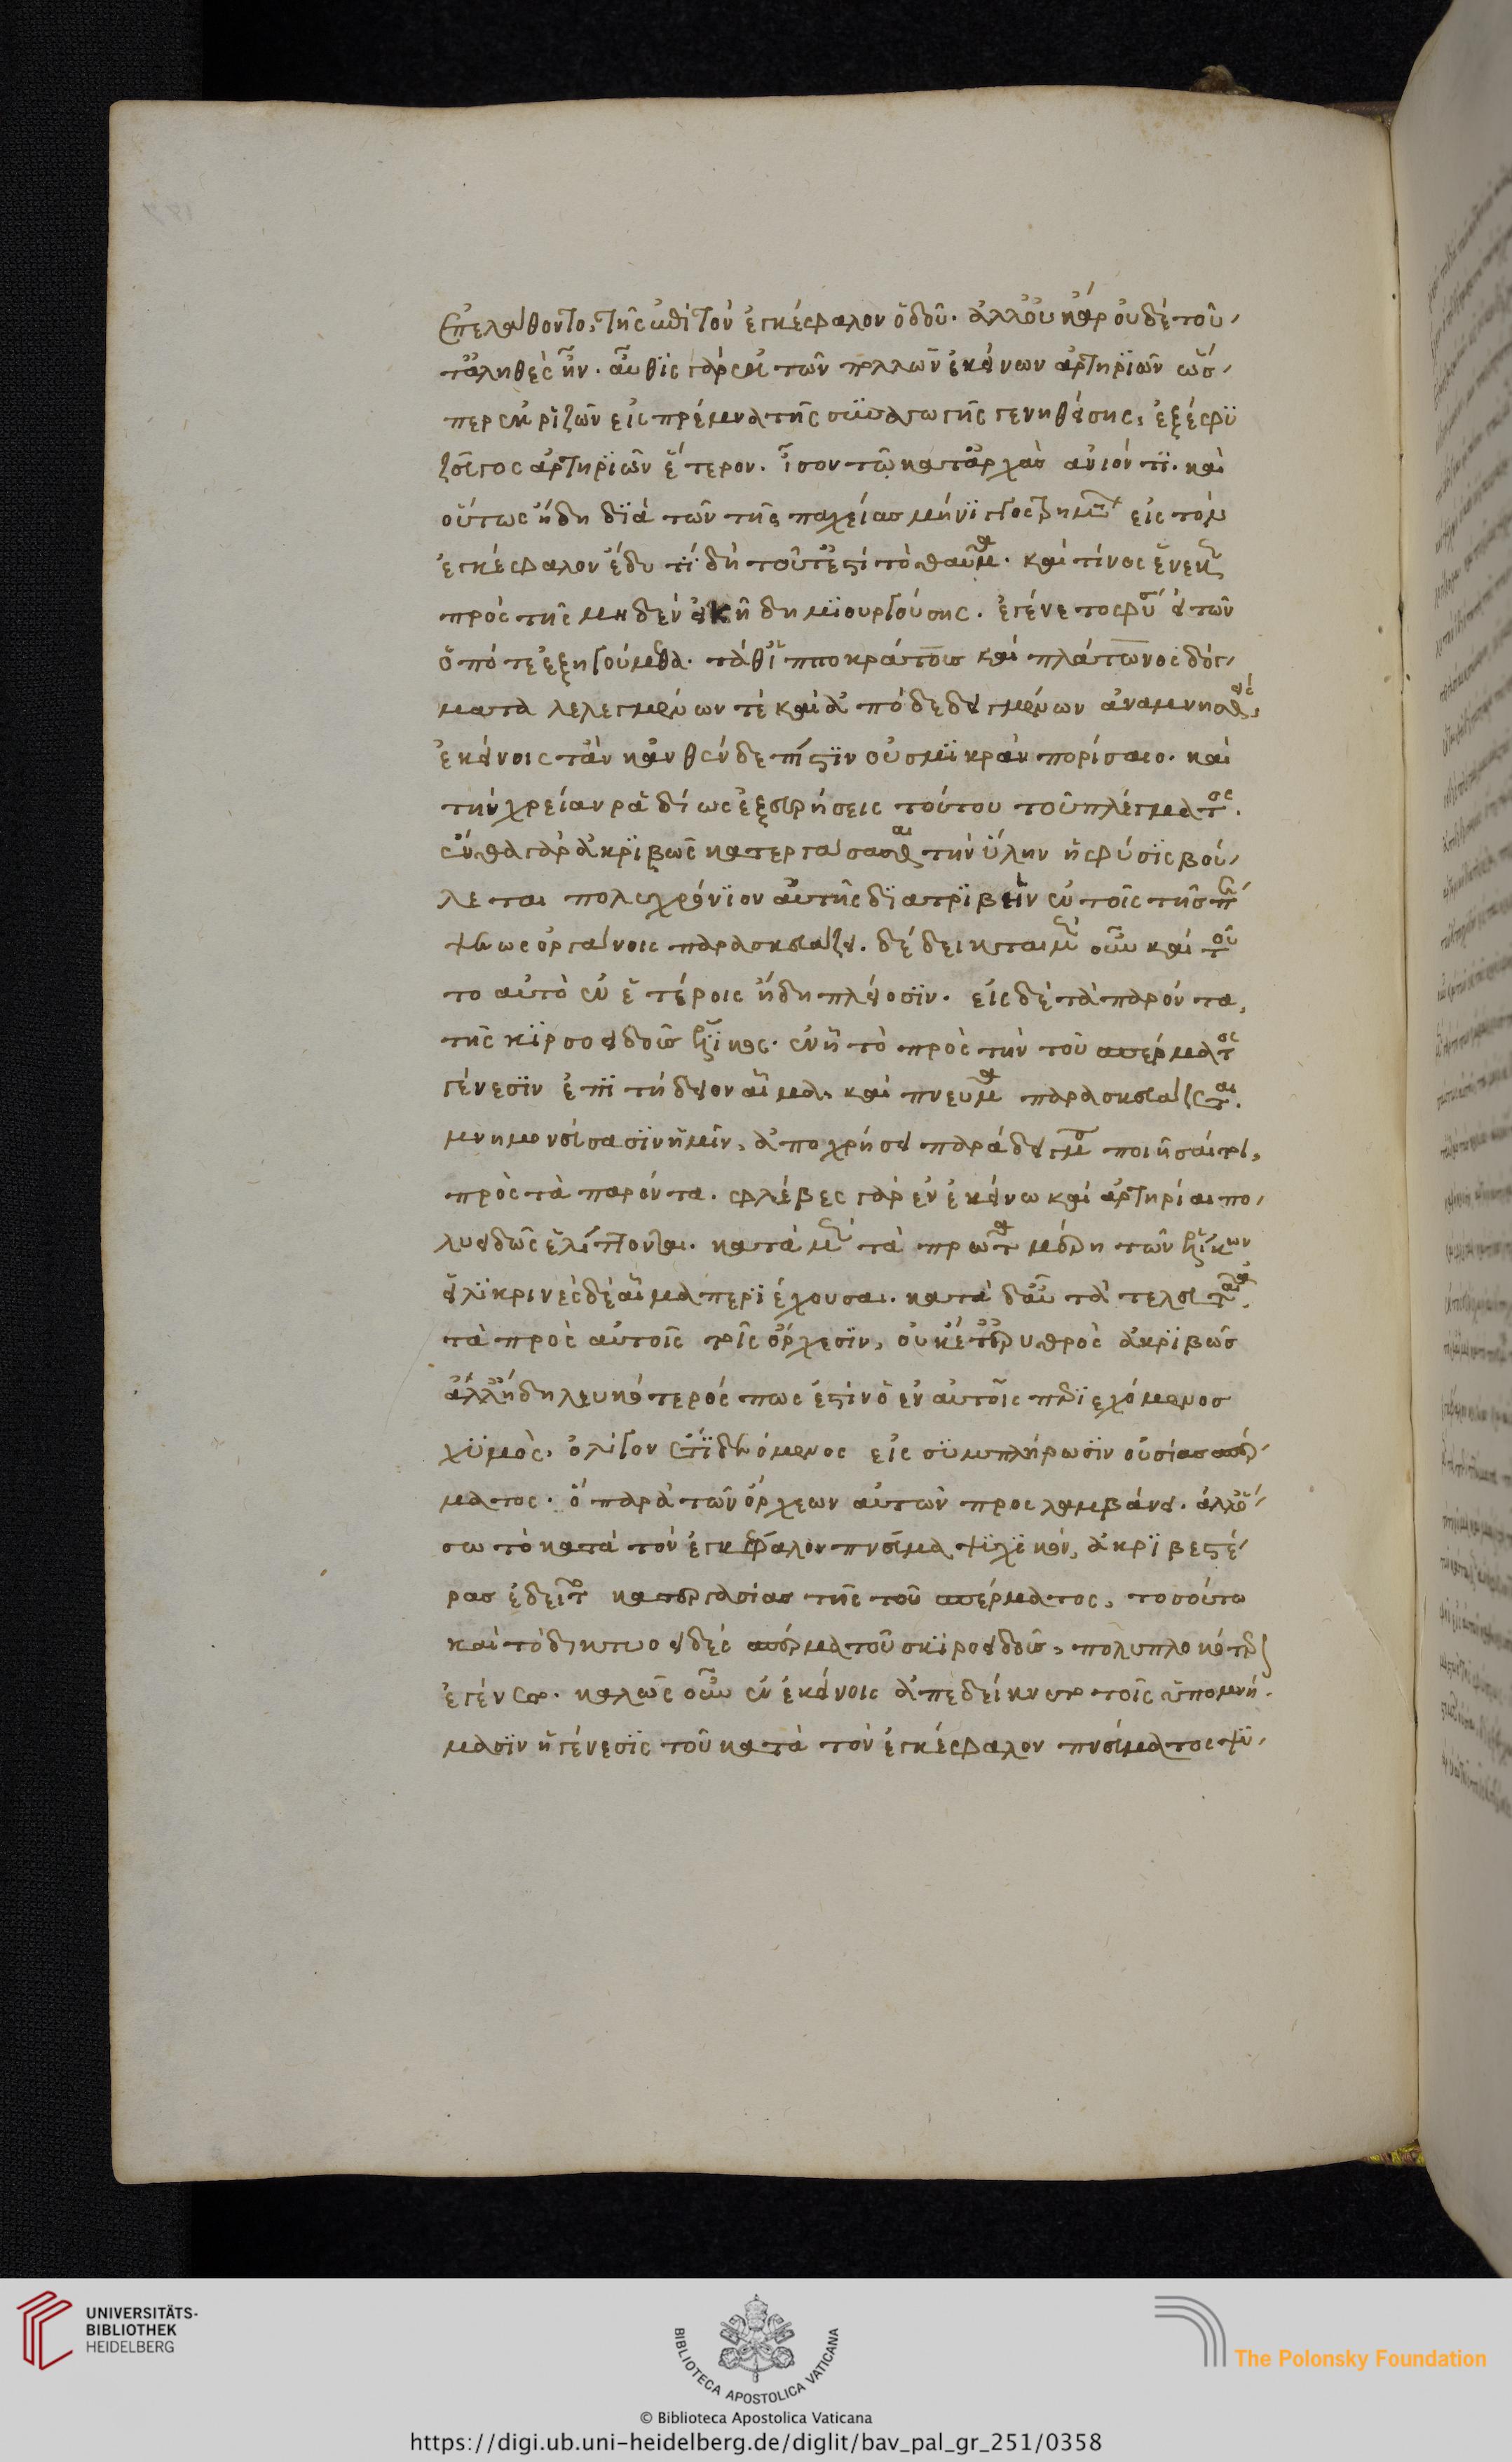 ἐπελάθοντο, τῆς ἐπὶ τὸν ἐγκέφαλον ὁδοῦ. ἀλλ' οὐκ ἄρ οὐδὲ τοῦ-
τ' ἀληθὲς ἦν. αὖθϊς γὰρ ἐκ τῶν πολλῶν ἐκείνων ἀρτηρϊῶν ὥσ-
περ ἐκ ῥϊζῶν εἰς πρέμνα τῆς συναγωγῆς γενηθείσης, ἐξέφυ
ζεῦγος ἀρτηρϊῶν ἕτερον. ἴσον τῶ κατ' ἀρχὰς ἀνιόντϊ. καὶ
οὕτως ἤδη δϊὰ τῶν τῆς παχείας μήνϊγγος τρημάτων εἰς τὸν
ἐγκέφαλον ἔδυ τί δὴ τοῦτ' ἐστὶ τὸ θαῦμα. καὶ τίνος ἕνεκα
πρὸς τῆς μηδὲν εἰκῆ δημϊουργούσης. ἐγένετο φύσεως τῶν
ὁπότε ἐξηγούμεθα. τάθ' ἱπποκράτους καὶ πλάτωνος δόγ-
ματα λελεγμένων τὲ καὶ ἀποδεδειγμένων ἀναμνησθεὶς,
ἐκείνοις τ' ἂν κἀνθένδε πίστϊν οὐ σμϊκρὰν πορίσαις. καὶ
τὴν χρείαν ῥαδίως ἐξευρήσεις τούτου τοῦ πλέγματος.
ἔνθα γὰρ ἀκρϊβῶς κατεργάσασθαι τὴν ὕλην ἡ φύσϊς βού-
λεται πολυχρόνϊον αὐτῆς δϊατρϊβὴν ἐν τοῖς τῆς πέ-
ψεως ὀργάνοις παρασκευάζει. δέδεικται μὲν οὖν καὶ τοῦ
το αὐτὸ ἐν ἑτέροις ἤδη πλείοσϊν. εἰς δὲ τὰ παρόντα,
τῆς κϊρσοειδοῦς ἕλϊκος. ἐν ἧ τὸ πρὸς τὴν τοῦ σπέρματος
γένεσϊν ἐπϊτήδειον αἷμα. καὶ πνεῦμα παρασκευάζεται.
μνημονεύσασϊν ἡμῖν, ἀποχρήσει παράδειγμα ποιήσασθαι,
πρὸς τὰ παρόντα. φλέβες γὰρ ἐν ἐκείνω καὶ ἀρτηρίαι πο-
λυειδῶς ἑλίττονται. κατὰ μὲν τὰ πρῶτα μέρη τῶν ἑλίκων
εἰλϊκρινὲς δὲ αἷμα περϊέχουσαι. κατὰ δ' αὖ τὰ τελευταῖα.
τὰ πρὸς αὐτοῖς τοῖς ὄρχεσϊν, οὐκέτ' ἐρυθρὸς ἀκρϊβῶς
ἀλλ' ἤδη λευκότερός πως ἐστὶν ὁ ἐν αὐτοῖς περϊεχόμενος
χϋμὸς, ὀλίγον ἔτϊ δεόμενος εἰς σϋμπλήρωσϊν οὐσίας σπέρ-
ματος. ὃ παρὰ τῶν ὄρχεων αὐτῶν προσλαμβάνει. ἀλλ' ὅ-
σω τὸ κατὰ τὸν ἐγκέφαλον πνεῦμα ψϋχϊκὸν, ἀκρϊβεστέ-
ρας ἐδεῖτο κατεργασίας τῆς τοῦ σπέρματος, τοσούτω
καὶ τὸ δικτυοειδὲς σπέρμα τοῦ σκϊροειδοῦς, πολυπλοκώτερον
ἐγένετο. καλῶς οὖν ἐν ἐκείνοις ἀπεδείκνυτο τοῖς ὑπομνή-
μασϊν ἡ γένεσϊς τοῦ κατὰ τὸν ἐγκέφαλον πνεύματος ψϋ-
UNIVERSITÄTS-
BIBLIOTHEK
HEIDELBERG
BIBLIOTECA APOSTOLICA VATICANA
The Polonsky Foundation
© Biblioteca Apostolica Vaticana
https://digi.ub.uni-heidelberg.de/diglit/bav_pal_gr_251/0358